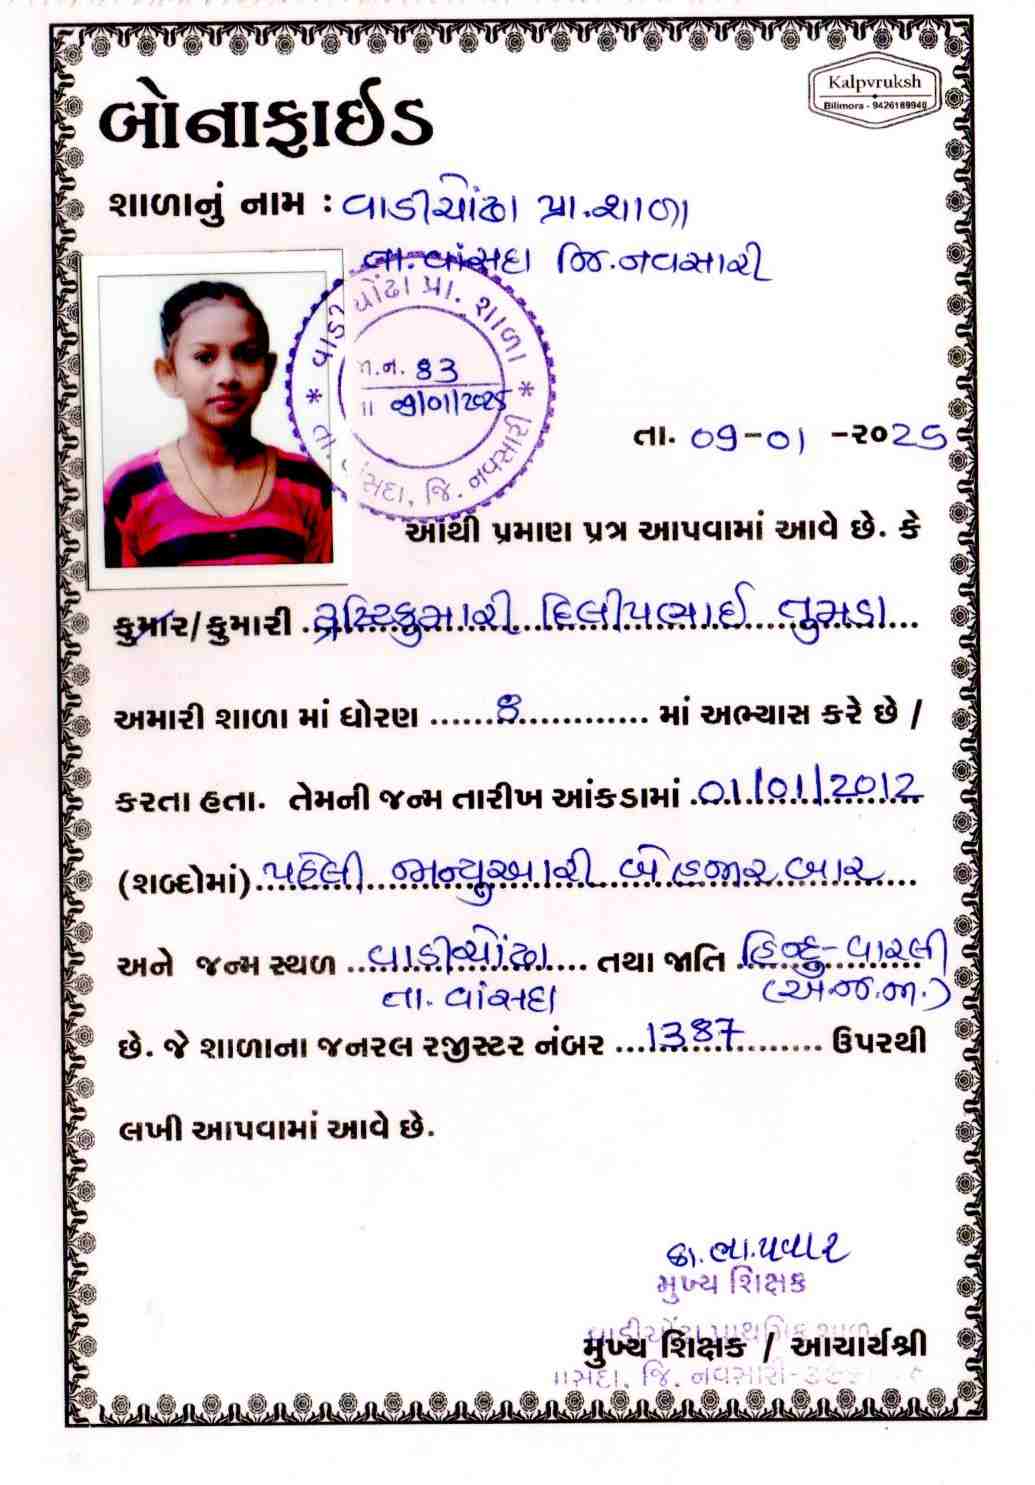 Kalpvruksh
Bilimora - 9426189940
બોનાફાઈડ
શાળાનું નામ : વાડીચોંઢા પ્રા.શાળા
તા.વાંસદા જિ.નવસારી
ચોંઢા પ્રા. શાળા
જા.ન. 83
09/01/2025
વાંસદા, જિ. નવસારી
તા. 09-01 -૨૦25
આથી પ્રમાણ પત્ર આપવામાં આવે છે. કે
કુમાર/કુમારી દિલીપભાઈ તુમડા
અમારી શાળા માં ધોરણ ......8............ માં અભ્યાસ કરે છે /
કરતા હતા. તેમની જન્મ તારીખ આંકડામાં 01/01/2012
(શબ્દોમાં) પહેલી જાન્યુઆરી બે હજાર બાર
અને જન્મ સ્થળ વાડીચોંઢા તથા જાતિ હિન્દુ-વારલી
તા. વાંસદા (અ.જ.જા.)
છે. જે શાળાના જનરલ રજીસ્ટર નંબર ...1387........ ઉપરથી
લખી આપવામાં આવે છે.
ભા.પવાર
મુખ્ય શિક્ષક
વાડીચોંઢા પ્રાથમિક શાળા
મુખ્ય શિક્ષક / આચાર્યશ્રી
જિ. નવસારી